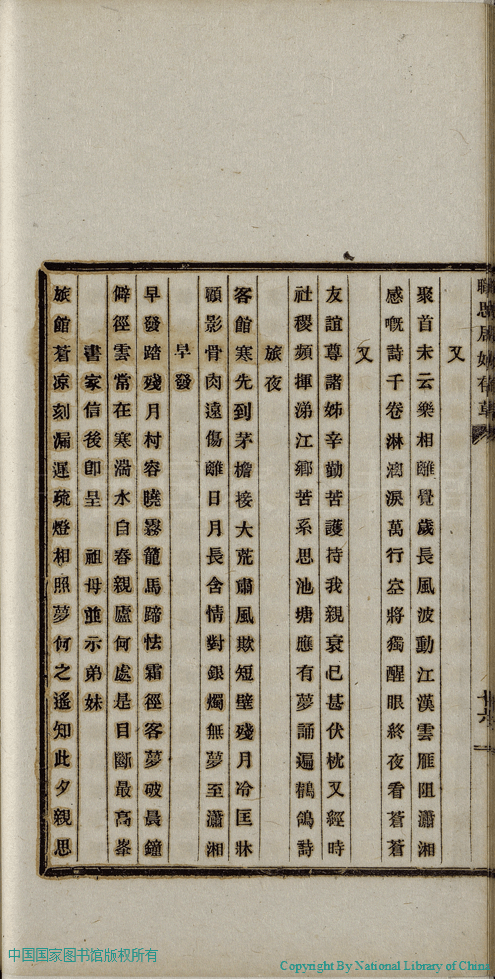 又
聚首未云樂相離覺歲長風波動江漢雲雁阻瀟湘
感嘅詩千卷淋漓淚萬行空將獨醒眼終夜看蒼蒼
又
友誼尊諸姊辛勤苦護持我親衰已甚伏枕又經時
社稷頻揮涕江鄉苦系思池塘應有夢誦遍鶺鴒詩
旅夜
客館寒先到茅檐接大荒肅風欺短壁殘月冷匡牀
顧影骨肉遠傷離日月長含情對銀燭無夢至瀟湘
早發
早發踏殘月村容曉霧籠馬蹄怯霜徑客夢破晨鐘
僻徑雲常在寒湍水自舂親廬何處是目斷最高峯
書家信後卽呈 祖母並示弟妹
旅館蒼凉刻漏遲疏燈相照夢何之遙知此夕親思
十六
中国国家图书馆版权所有
Copyright By National Library of China